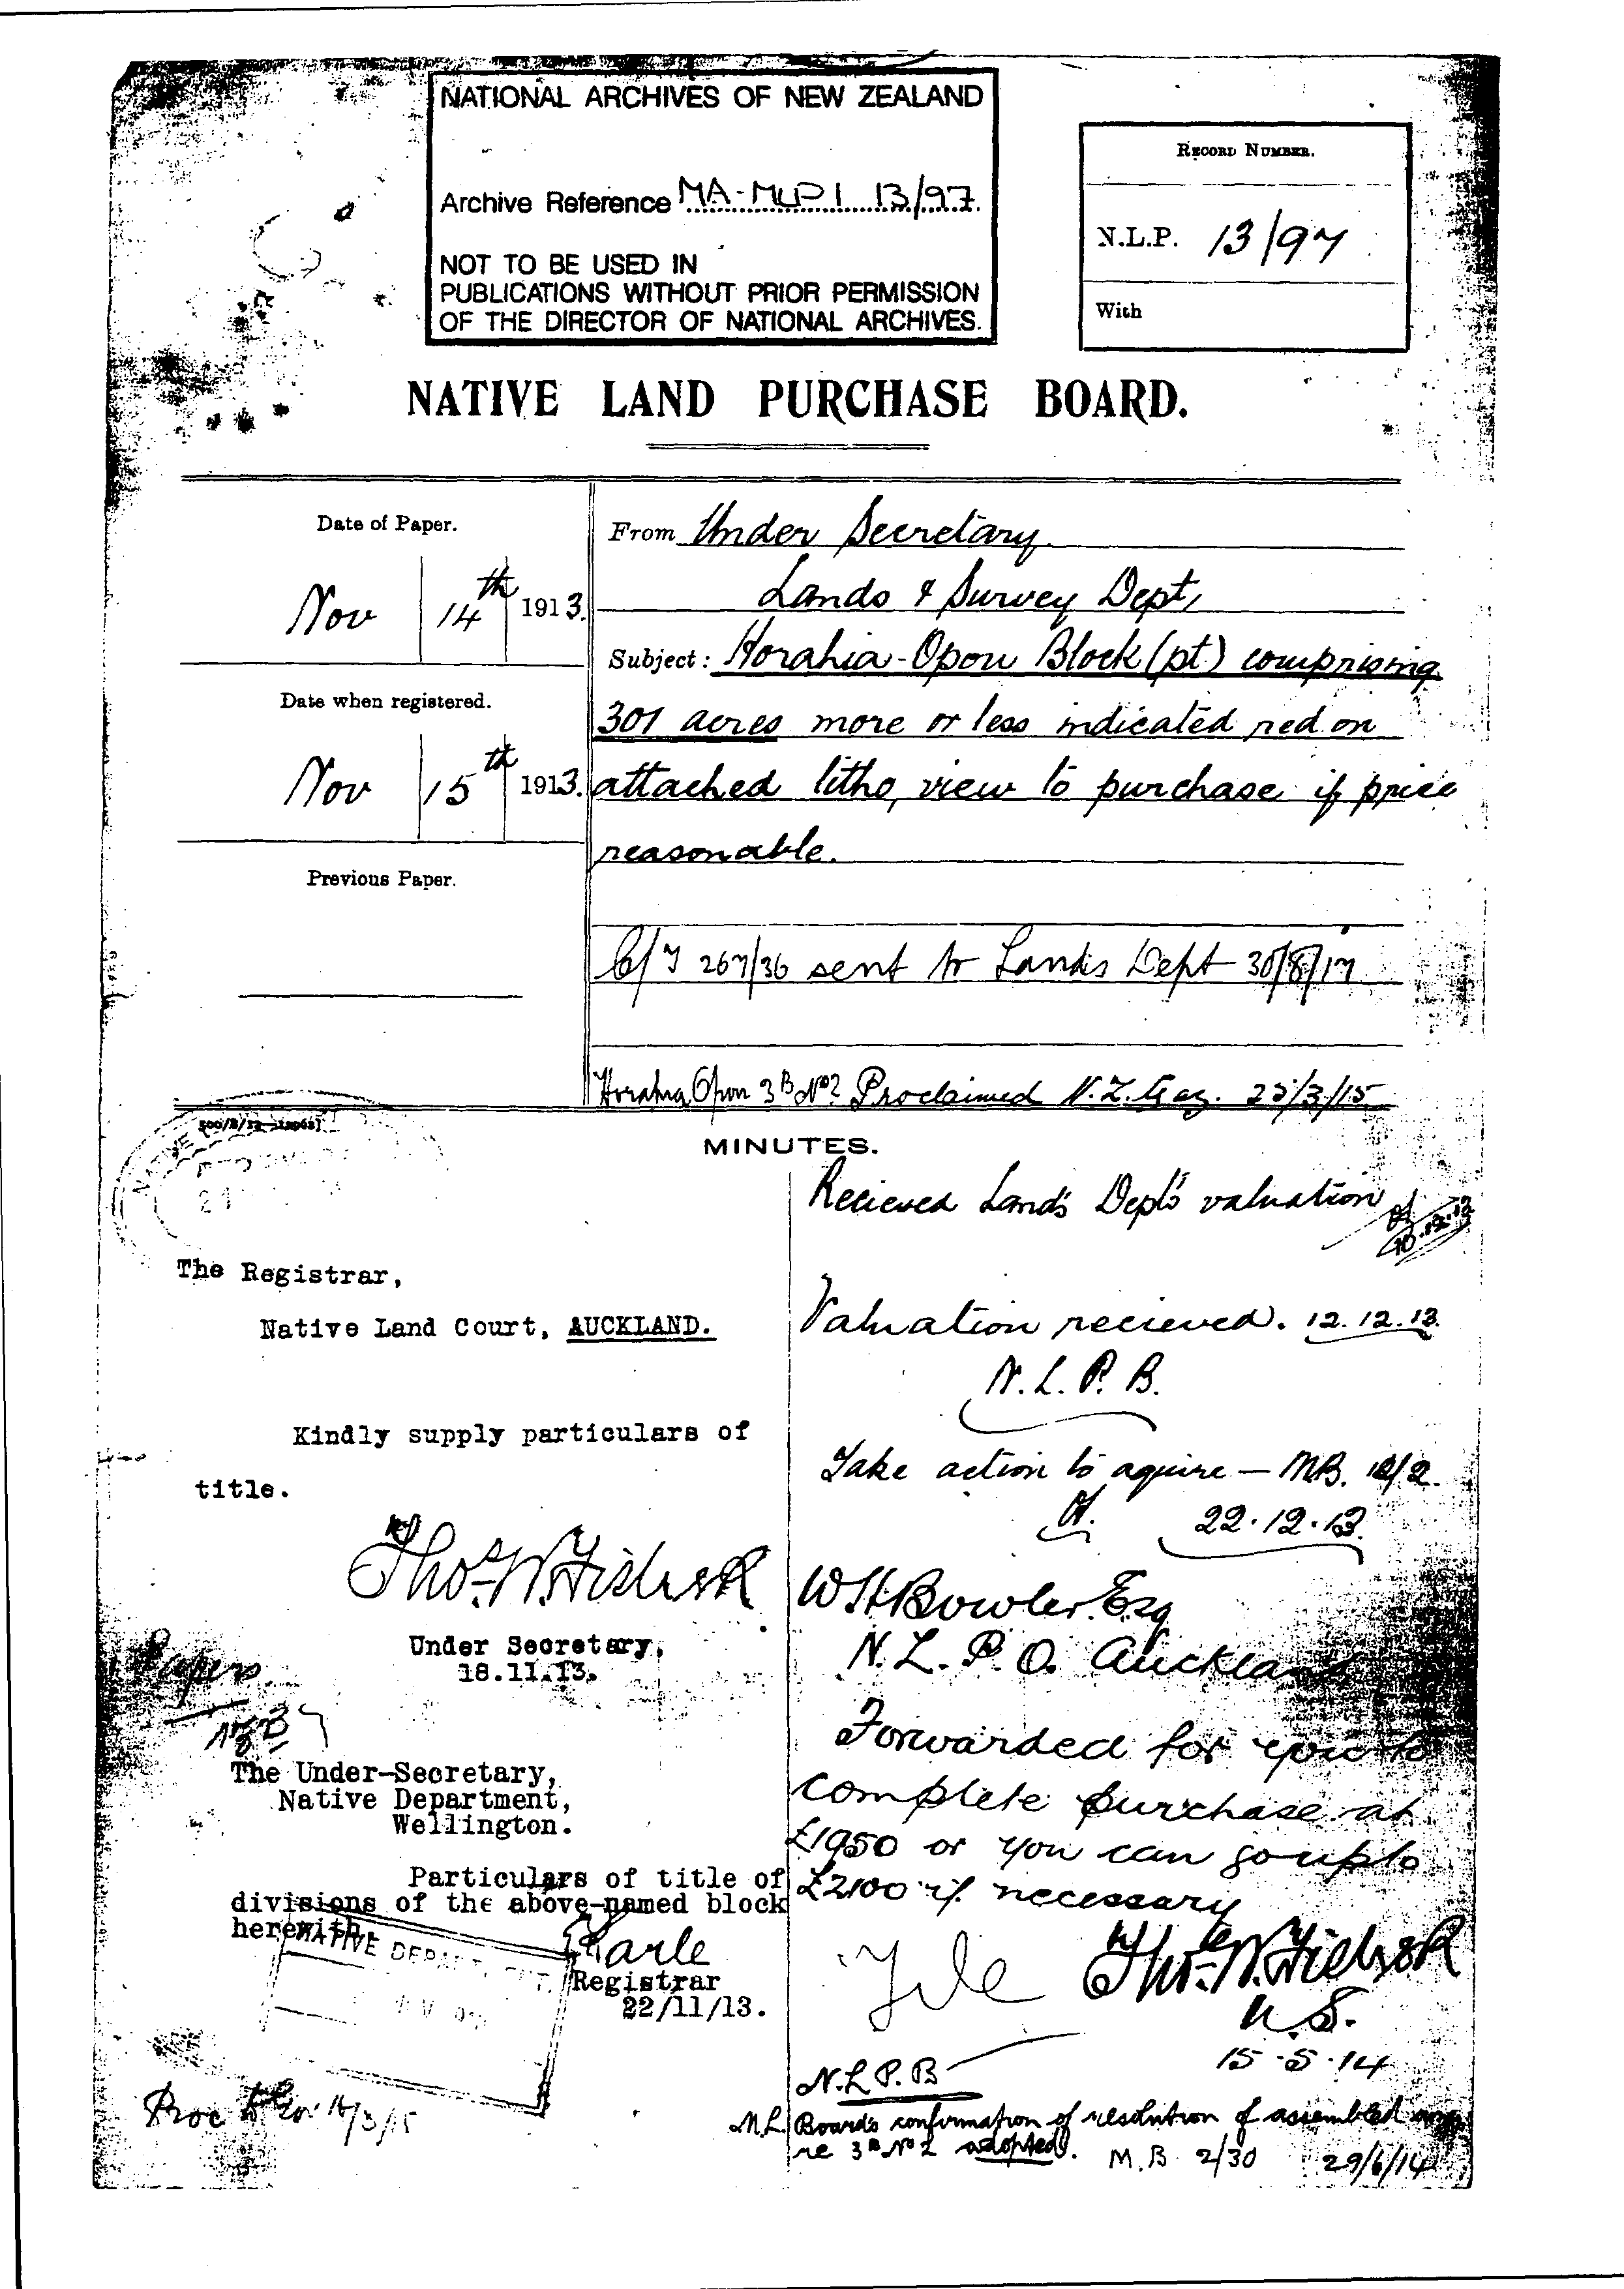 NATIONAL ARCHIVES OF NEW ZEALAND
Archive Reference MA-MLP 1 13/97
NOT TO BE USED IN
PUBLICATIONS WITHOUT PRIOR PERMISSION
OF THE DIRECTOR OF NATIONAL ARCHIVES.
RECORD NUMBER.
N.L.P. 13/97
With
NATIVE LAND PURCHASE BOARD.
Date of Paper.
Nov 14th 1913.
Date when registered.
Nov 15th 1913.
Previous Paper.
From Under Secretary
Lands & Survey Dept,
Subject: Horahia-Opou Block (pt) comprising
301 acres more or less indicated red on
attached litho, view to purchase if price
reasonable.
C/T 267/36 sent to Lands Dept 30/8/17
Horahia Opou 3B No 2 Proclaimed N.Z. Gaz. 25/3/15
MINUTES.
The Registrar,
Native Land Court, AUCKLAND.
Kindly supply particulars of
title.
Thos. W. Fisher
Under Secretary,
18.11.13.
Papers
The Under-Secretary,
Native Department,
Wellington.
Particulars of title of
divisions of the above-named block
herewith.
NATIVE DEPARTMENT
Earle
Registrar
22/11/13.
Proc 16/3/15
Recieved Land's Dept's valuation
10.12.13
Valuation recieved. 12.12.13.
N.L.P.B.
Take action to aquire — MB. 12/2.
22.12.13.
W H Bowler. Esq
N.L.P.O. Auckland
Forwarded for you to
complete purchase at
£1950 or you can go up to
£2100 if necessary
File
Thos. W. Fisher
U.S.
15.5.14
N.L.P.B
M.L. Board's confirmation of resolution of assembled
re 3B No 2 adopted. M.B. 2/30 29/6/14